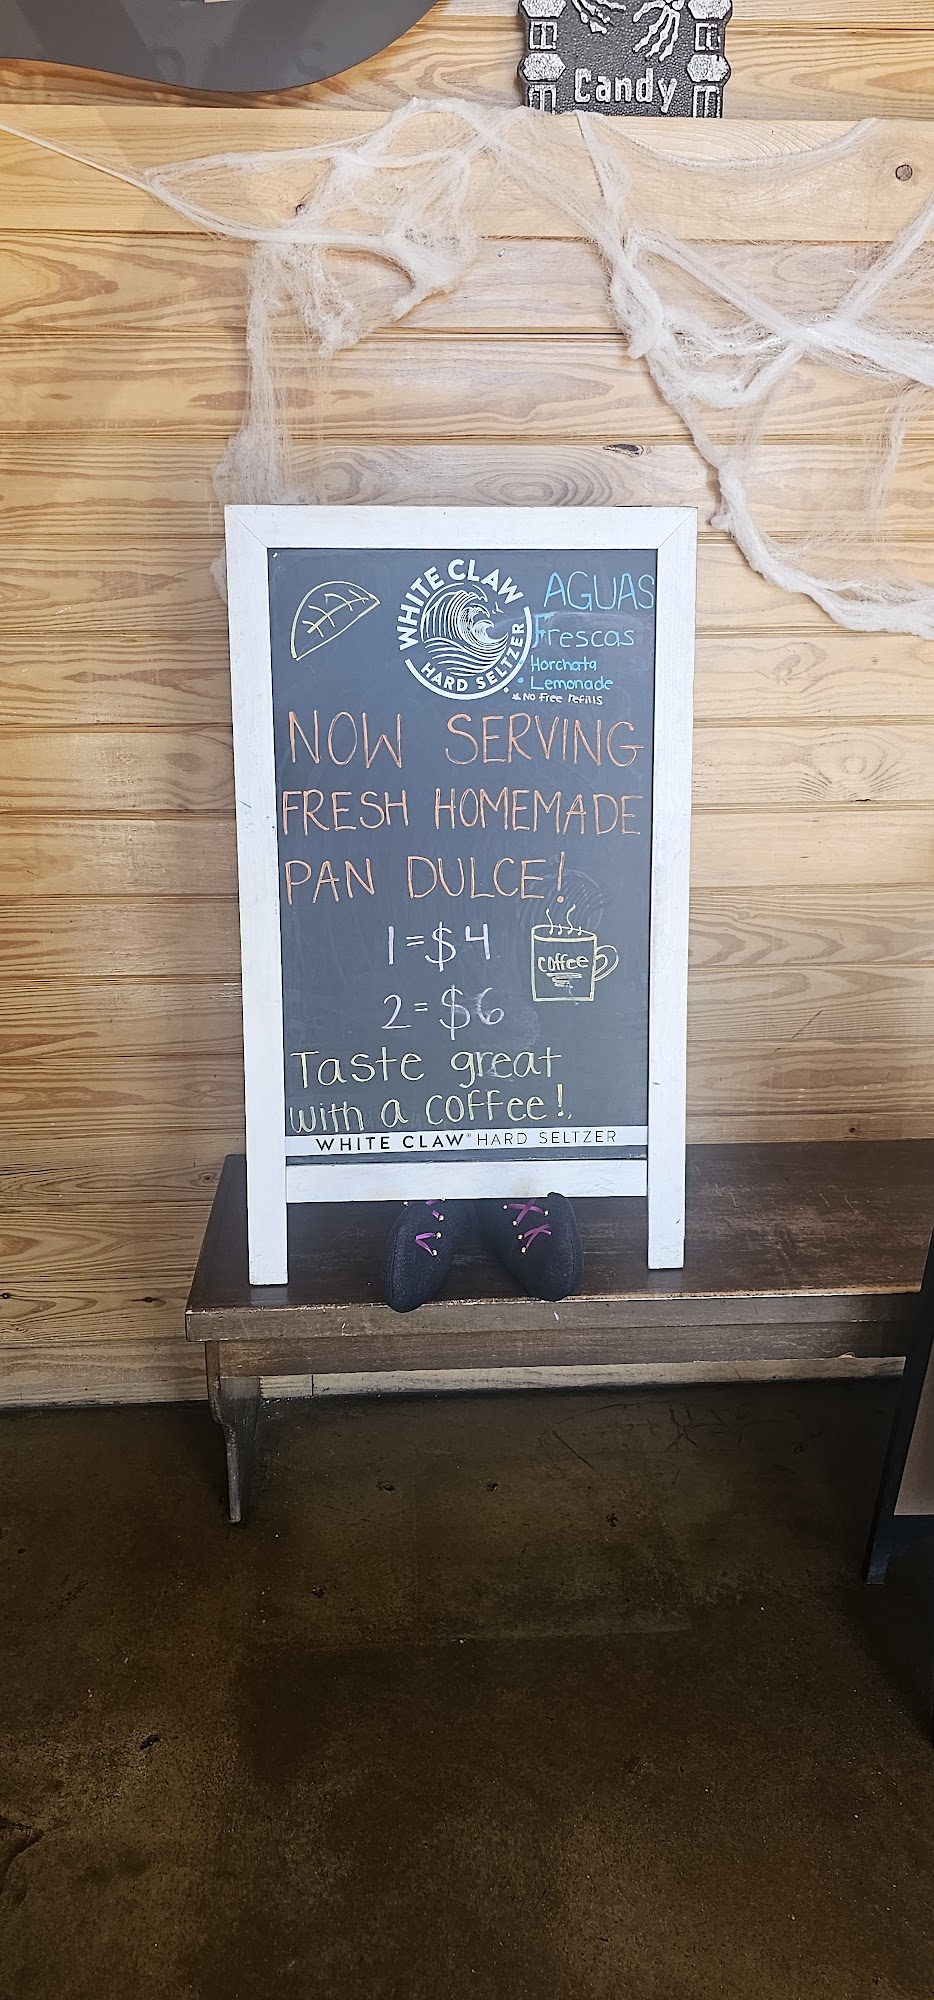 Candy
WHITE CLAW
HARD SELTZER
AGUAS
Frescas
• Horchata
• Lemonade
* No Free refills
NOW SERVING
FRESH HOMEMADE
PAN DULCE!
1=$4
2=$6
coffee
Taste great
with a coffee!
WHITE CLAW® HARD SELTZER